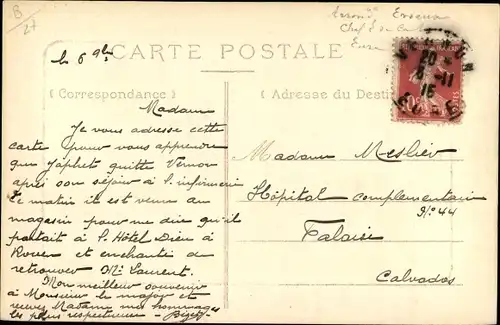 CARTE POSTALE
le 6 9bre
(Correspondance)
Madame
Je vous adresse cette
carte pour vous apprendre
que Japhet quitte Vernon
après son séjour à l. infirmerie
Ce matin il est venu au
magasin pour me dire qu'il
partait à l. Hôtel Dieu à
Rouen et enchanté de
retrouver Mr Laurent.
Mon meilleur souvenir
à Monsieur le major et
recevez Madam mes hommages
les plus respectueux
Adresse du Desti
Madame Meslier
Hôpital complementaire
No 44
Falaise
Calvados
20
11
15
EURE